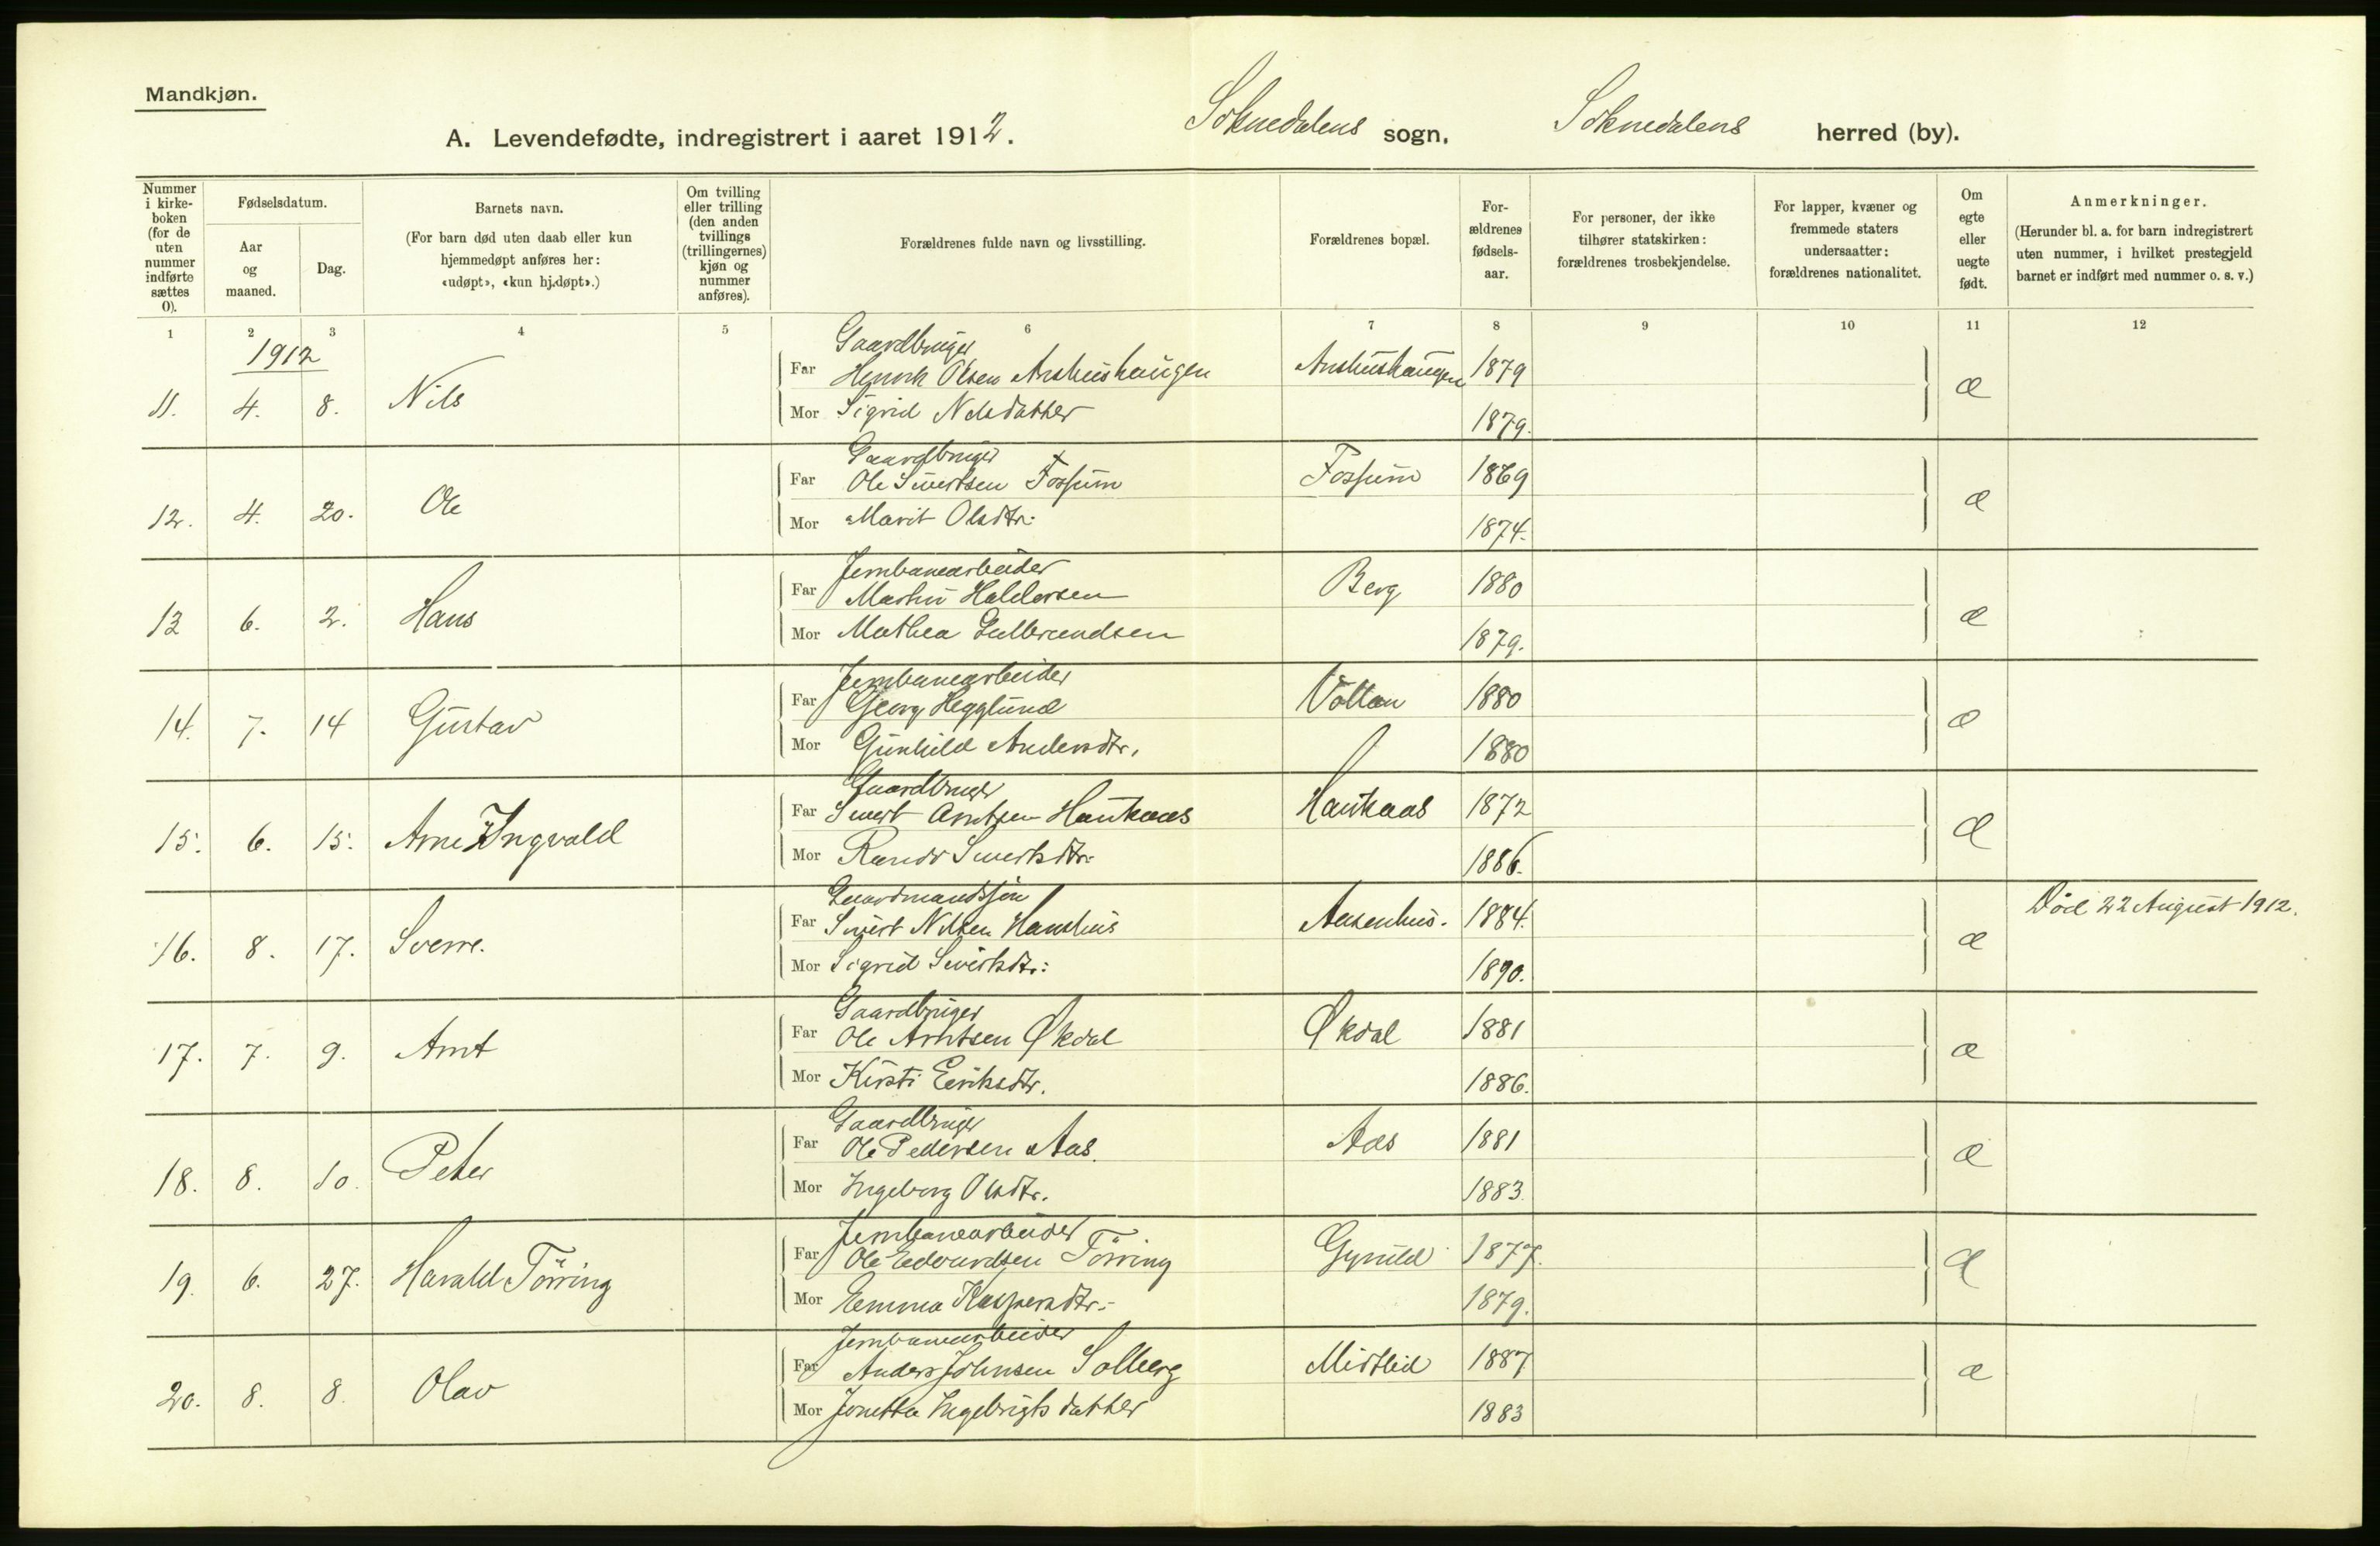 Mandkjøn.
A. Levendefødte, indregistrert i aaret 1912. Soknedalens sogn, Soknedalens herred (by).
Nummer i kirke-boken (for de uten nummer indførte sættes 0).
Fødselsdatum.
Aar og maaned.
Dag.
Barnets navn.
(For barn død uten daab eller kun hjemmedøpt anføres her: «udøpt», «kun hj.døpt».)
Om tvilling eller trilling (den anden tvillings (trillingernes) kjøn og nummer anføres).
Forældrenes fulde navn og livsstilling.
Forældrenes bopæl.
For-ældrenes fødsels-aar.
For personer, der ikke tilhører statskirken: forældrenes trosbekjendelse.
For lapper, kvæner og fremmede staters undersaatter: forældrenes nationalitet.
Om egte eller uegte født.
Anmerkninger.
(Herunder bl. a. for barn indregistrert uten nummer, i hvilket prestegjeld barnet er indført med nummer o. s. v.)
1 2 3 4 5 6 7 8 9 10 11 12
1912
Gaardbruger
Far Henrik Olsen Anshushaugen Anshushaugen 1879
11. 4. 8. Nils æ
Mor Sigrid Nilsdatter 1879.
Gaardbruger
Far Ole Sivertsen Fossum Fossum 1869
12. 4. 20. Ole æ
Mor Marit Olsdtr: 1874.
Jernbanearbeider
Far Martin Haldorsen Berg 1880
13 6. 2. Hans æ
Mor Mathea Gulbrandsen 1879.
Jernbanearbeider
Far Georg Hegglund Vollan 1880
14. 7. 14 Gustav æ
Mor Gunhild Andersdtr. 1880
Gaardbruger
Far Sivert Arntsen Haukaas Haukaas 1872
15. 6. 15. Arne Ingvald æ
Mor Randi Sivertsdtr. 1886.
Gaardmandssøn
Far Sivert Nilsen Hanshus Aasenhus. 1884. Død 22 August 1912.
16. 8. 17. Sverre. æ
Mor Sigrid Sivertsdtr: 1890.
Gaardbruger
Far Ole Arntsen Økdal Økdal 1881
17. 7. 9. Arnt æ
Mor Kirsti Eriksdtr. 1886.
Gaardbruger
Far Ole Pedersen Aas. Aas 1881
18. 8. 10. Peter æ
Mor Ingeborg Olsdtr. 1883.
Jernbanearbeider
Far Ole Edvardsen Törring Gynild 1877.
19. 6. 27. Harald Törring æ
Mor Emma Kaspersdtr. 1879.
Jernbanearbeider
Far Anders Johnsen Solberg Midtlid 1887
20. 8. 8. Olav æ
Mor Jonetta Ingebrigtsdatter 1883